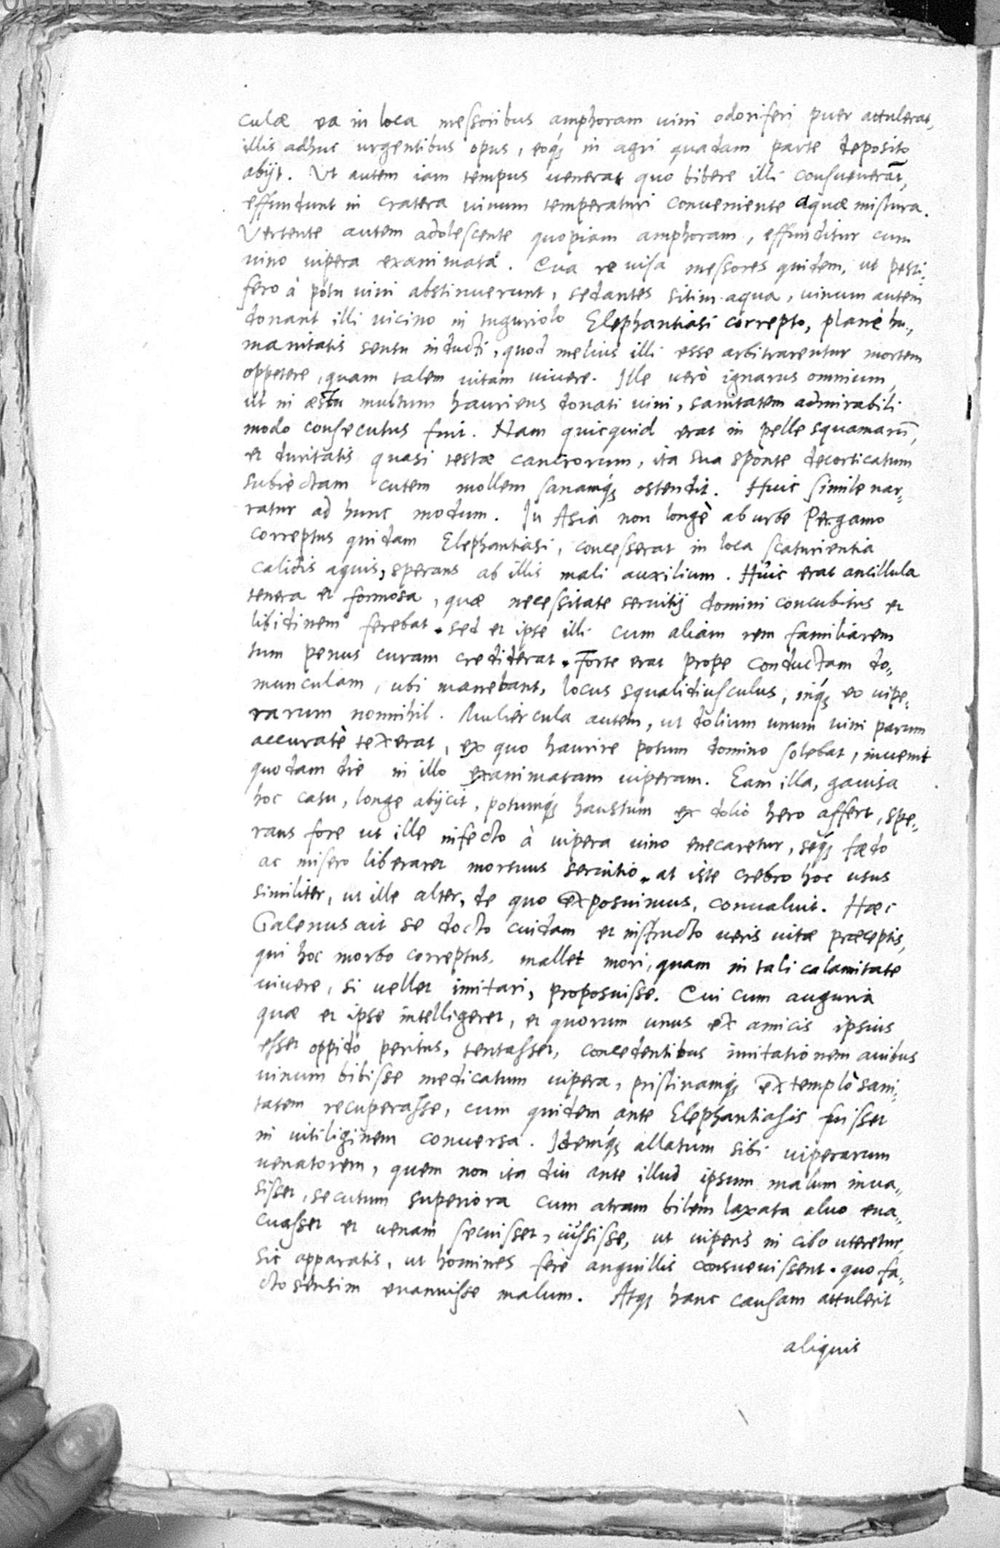 culæ ea in loca messoribus amphoram vini odoriferi puer attulerat,
illis adhuc urgentibus opus, eoq; in agri quadam parte deposito
abijt. Ut autem iam tempus venerat quo bibere illi consueverāt,
effundunt in cratera vinum temperaturi conveniente aquæ mistura.
Vertente autem adolescente quopiam amphoram, effunditur cum
vino vipera exanimata. Qua re visa messores quidem, ut pesti-
fero à potu vini abstinuerunt, sedantes sitim aqua, vinum autem
donant illi vicino in tuguriolo Elephantiasi correpto, planè hu-
manitatis sensu inducti, quod melius illi esse arbitrarentur mortem
oppetere, quam talem vitam vivere. Ille verò ignarus omnium,
ut in æstu multum hauriens donati vini, sanitatem admirabili
modo consecutus fuit. Nam quicquid erat in pelle squamarū,
et duritatis quasi testæ cancrorum, ita sua sponte decorticatum
subiectam cutem mollem sanamq; ostendit. Huic simile nar-
ratur ad hunc modum. In Asia non longè ab urbe Pergamo
correptus quidam Elephantiasi, concesserat in loca scaturientia
calidis aquis, sperans ab illis mali auxilium. Huic erat ancillula
tenera et formosa, quæ necessitate servitij domini concubitus et
libidinem ferebat. sed et ipse illi cum aliam rem familiarem
tum penus curam crediderat. Forte erat prope conductam do-
munculam, ubi manebant, locus squalidiusculus, inq; eo vipe-
rarum nonnihil. Muliercula autem, ut dolium unum vini parum
accuratè texerat, ex quo haurire potum domino solebat, invenit
quodam die in illo exanimatam viperam. Eam illa, gavisa
hoc casu, longe abijcit, potumq; haustum ex dolio hero affert, spe-
rans fore ut ille infecto à vipera vino enecaretur, seq; fœdo
ac misero liberaret mortuus servitio. at iste crebro hoc usus
similiter, ut ille alter, de quo exposuimus, convaluit. Hæc
Galenus ait se docto cuidam et instructo veris vitæ præceptis,
qui hoc morbo correptus, mallet mori, quam in tali calamitate
vivere, si vellet imitari, proposuisse. Cui cum auguria
quæ et ipse intelligeret, et quorum unus ex amicis ipsius
esset oppidò peritus, tentasset, concedentibus imitationem avibus
vinum bibisse medicatum vipera, pristinamq; extemplò sani-
tatem recuperasse, cum quidem ante Elephantiasis fuisset
in vitiliginem conversa. Idemq; allatum sibi viperarum
venatorem, quem non ita diu ante illud ipsum malum inva-
sisset, secutum superiora cum atram bilem laxata alvo eva-
cuasset et venam secuisset, iussisse, ut viperis in cibo uteretur,
sic apparatis, ut homines ferè anguillis consuevissent. quo fa-
cto sensim evanuisse malum. Atq; hanc causam attulerit
aliquis